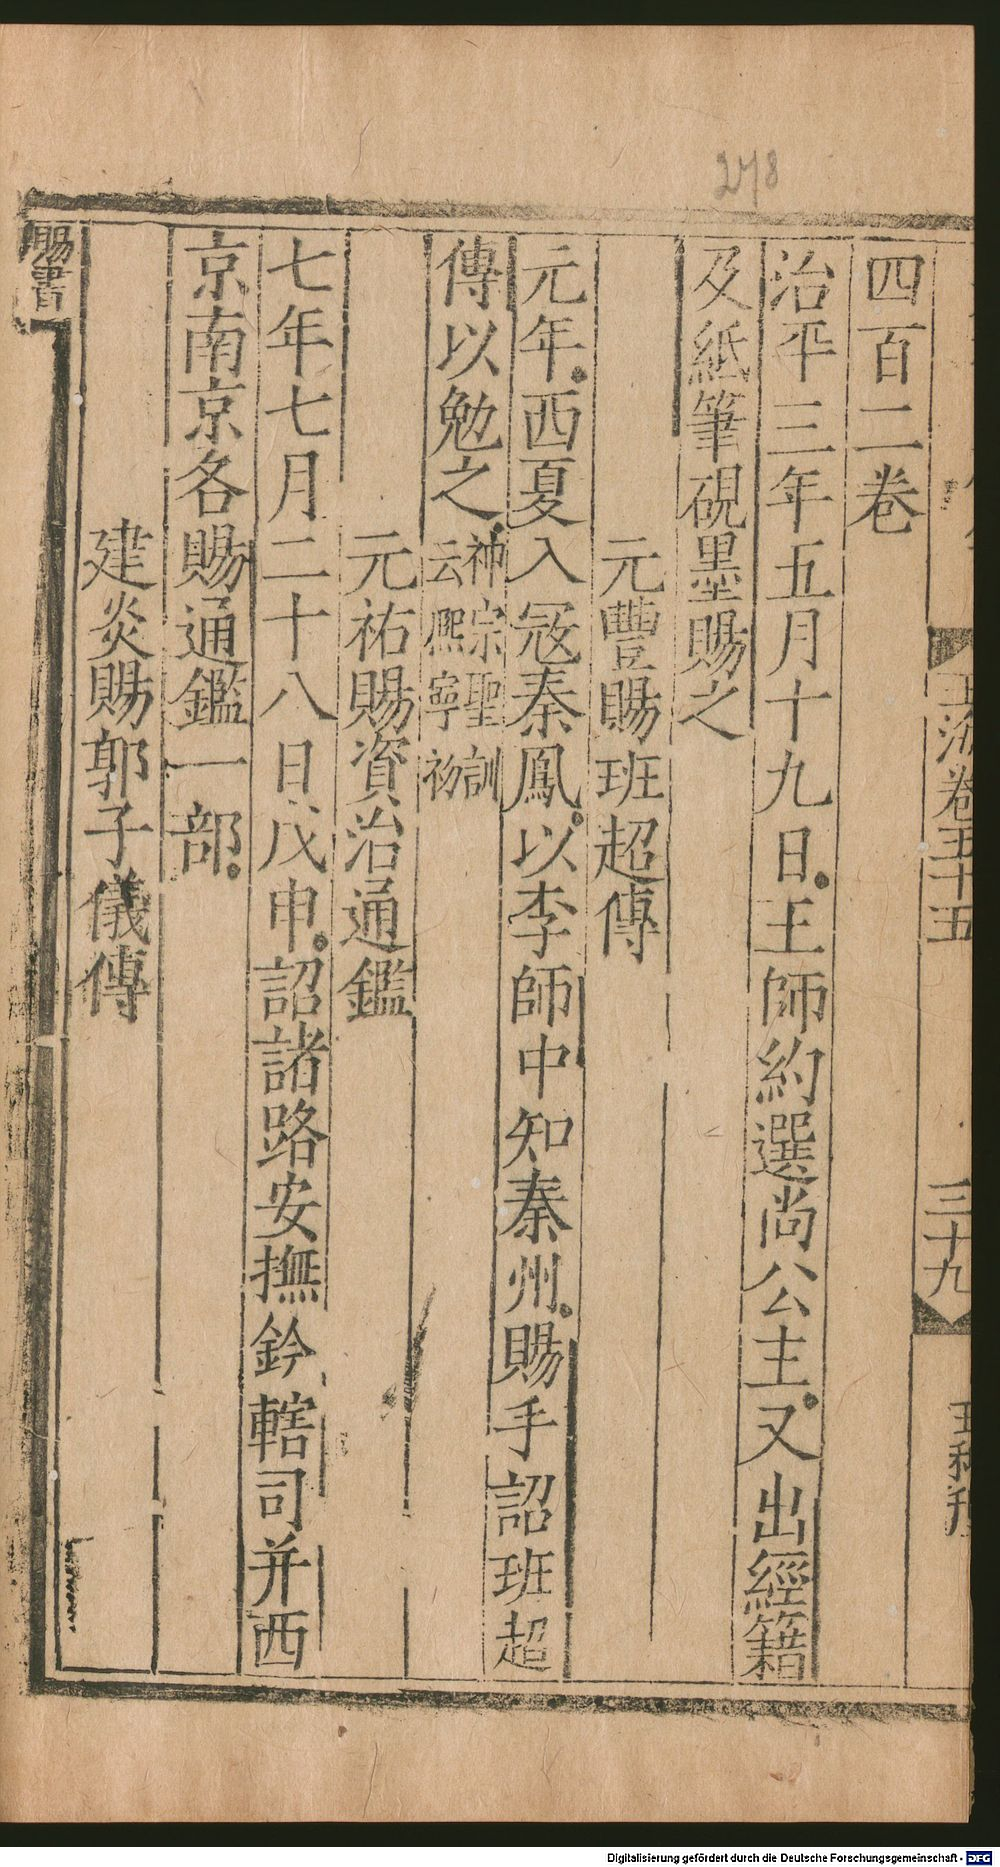 278
玉海卷五十五
三十九
四百二卷
治平三年五月十九日王師約選尚公主又出經籍
及紙筆硯墨賜之
元豐賜班超傳
元年西夏入宼秦鳳以李師中知秦州賜手詔班超
傳以勉之
神宗聖訓
云熈寧初
元祐賜資治通鑑
七年七月二十八日戊申詔諸路安撫鈐轄司并西
京南京各賜通鑑一部
建炎賜郭子儀傳
賜書
Digitalisierung gefördert durch die Deutsche Forschungsgemeinschaft - DFG